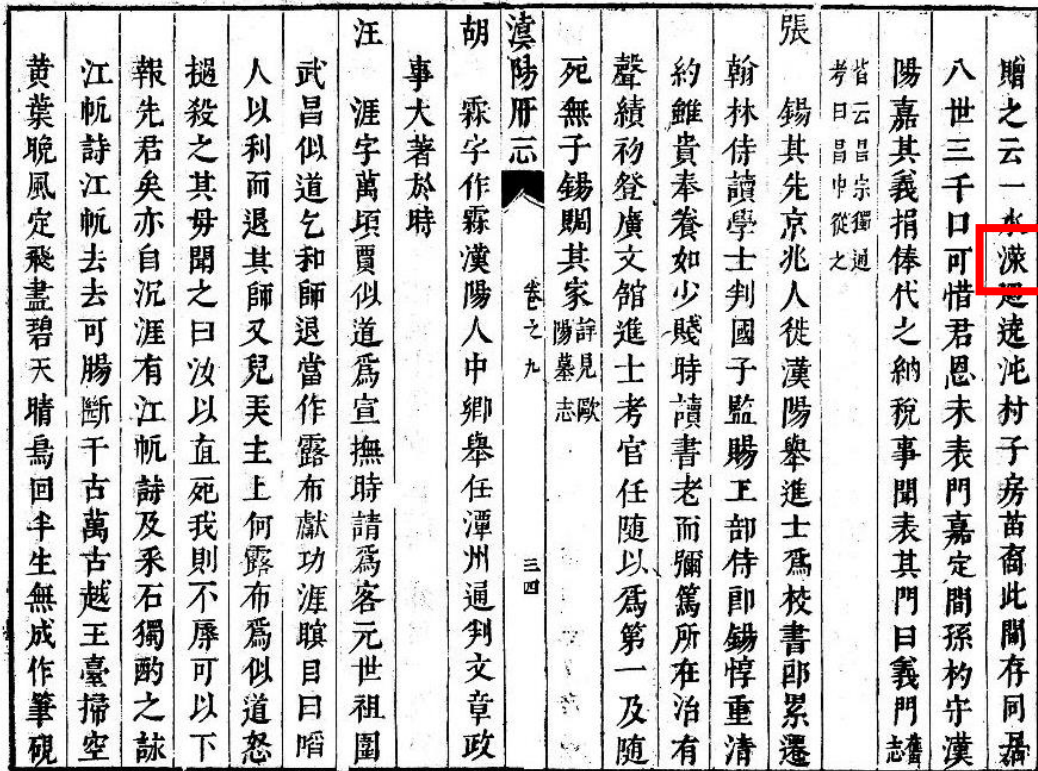 贈之云一水濚廻遶沌村子房苗裔此間存同居
八世三千口可惜君恩未表門嘉定間孫杓守漢
陽嘉其義捐俸代之納稅事聞表其門曰義門舊志
皆云昌宗獨通考曰昌中從之
張　錫其先京兆人徙漢陽舉進士爲校書郎累遷
翰林侍讀學士判國子監賜工部侍郎錫惇重清
約雖貴奉養如少賤時讀書老而彌篤所在治有
聲績初登廣文館進士考官任随以爲第一及随
死無子錫賙其家詳見歐陽墓志
漢陽府志　卷之九　三四
胡　霖字作霖漢陽人中鄉舉任潭州通判文章政
事大著於時
汪　涯字萬頃賈似道爲宣撫時請爲客元世祖圍
武昌似道乞和師退當作露布獻功涯瞋目曰䧟
人以利而退其師又兒美主上何露布爲似道怒
撾殺之其母聞之曰汝以直死我則不辱可以下
報先君矣亦自沉涯有江帆詩及釆石獨酌之詠
江帆詩江帆去去可腸斷千古萬古越王臺掃空
黄葉晚風定飛盡碧天晴鳥回半生無成作筆硯